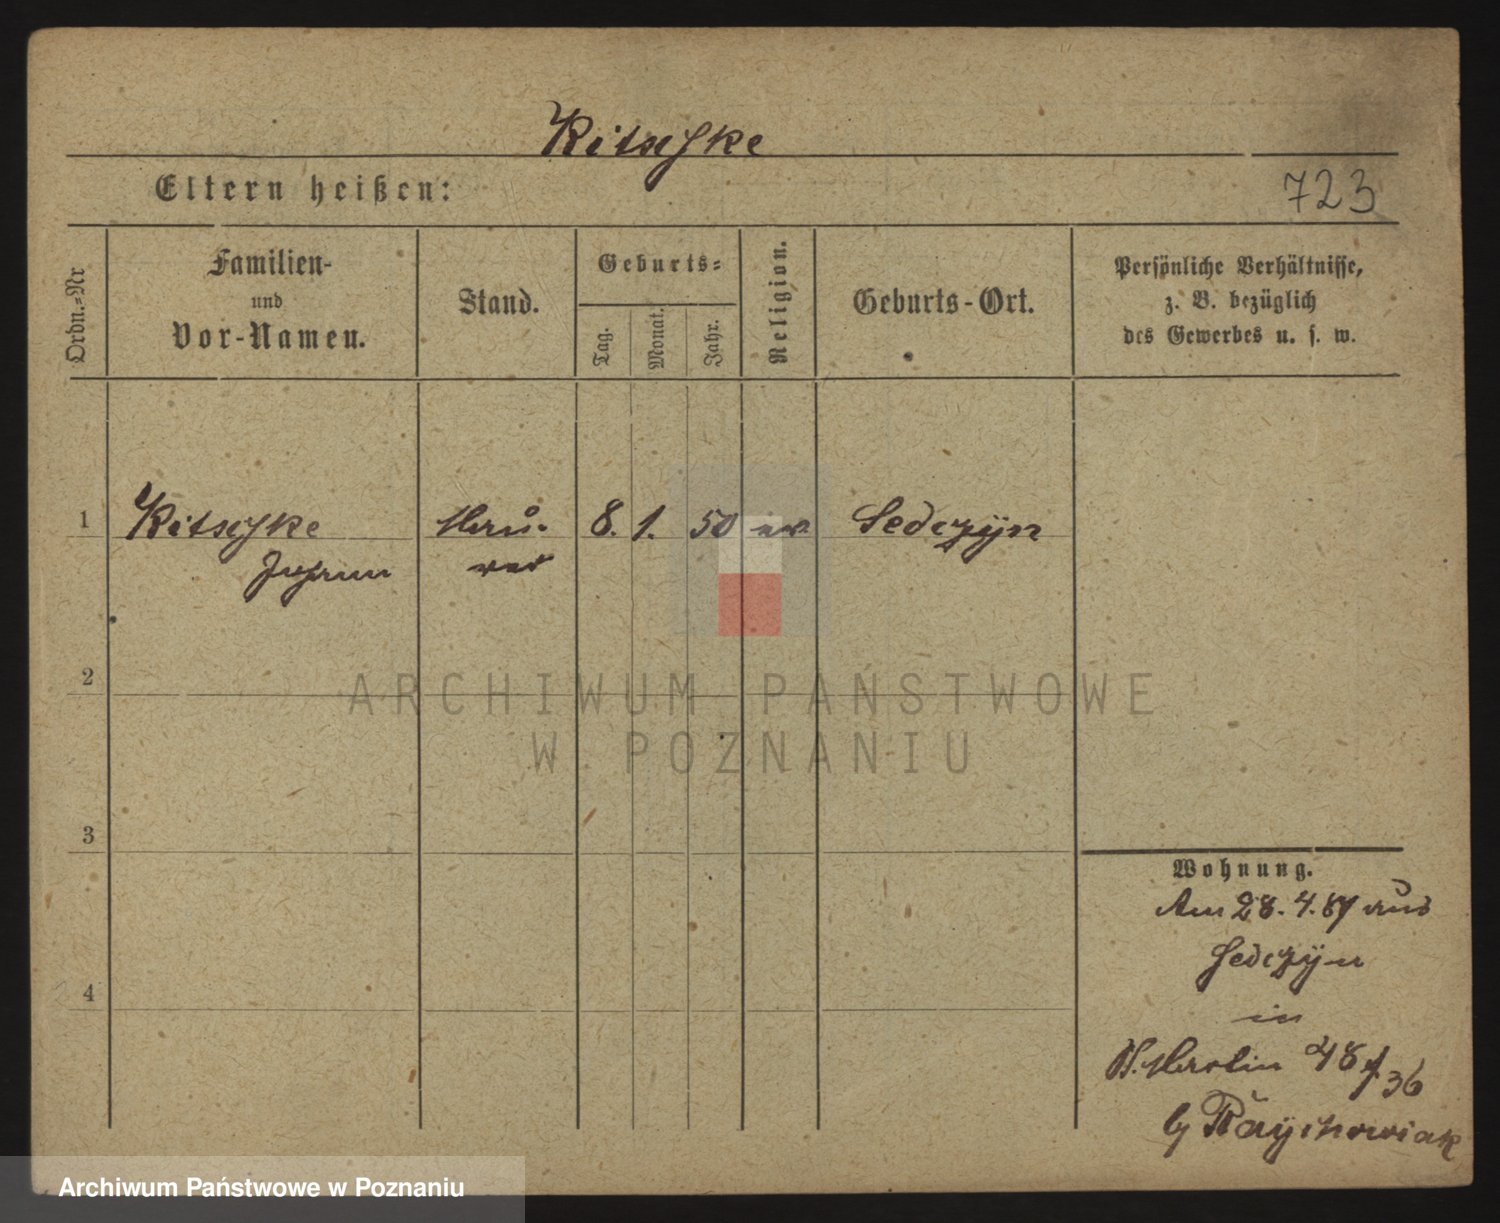 Kitschke
Eltern heißen:
723
Ordn.=Nr
Familien-
und
Vor-Namen.
Stand.
Geburts=
Tag.
Monat.
Jahr.
Religion.
Geburts-Ort.
Persönliche Verhältnisse,
z. B. bezüglich
des Gewerbes u. s. w.
1 Kitschke Mau- 8. 1. 50 ev. Sedczyn
Johann rer
2
ARCHIWUM PAŃSTWOWE
W POZNANIU
3
4
Wohnung.
Am 28. 4. 87 aus
Sedczyn
in
St. Martin 48/36
Archiwum Państwowe w Poznaniu